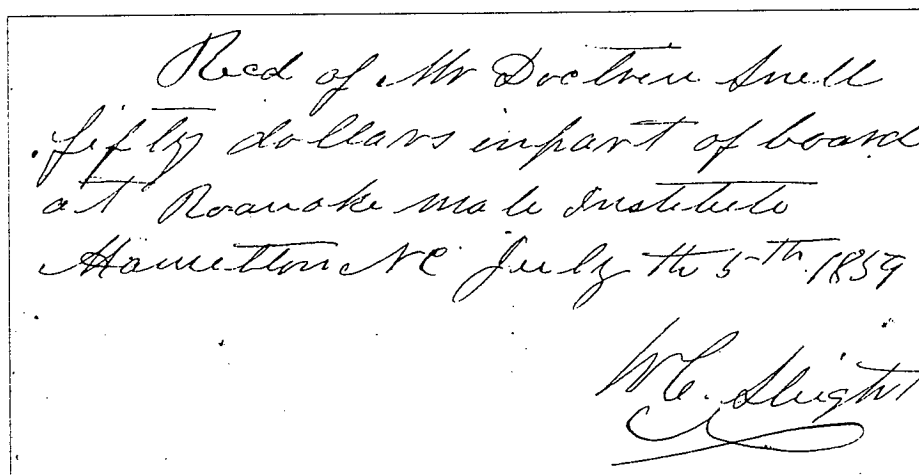 Recd of Mr Doctren Snell
fifty dollars in part of board
at Roanoke male Institute
Hamelton NC July th 5th 1859
W C. Sleight